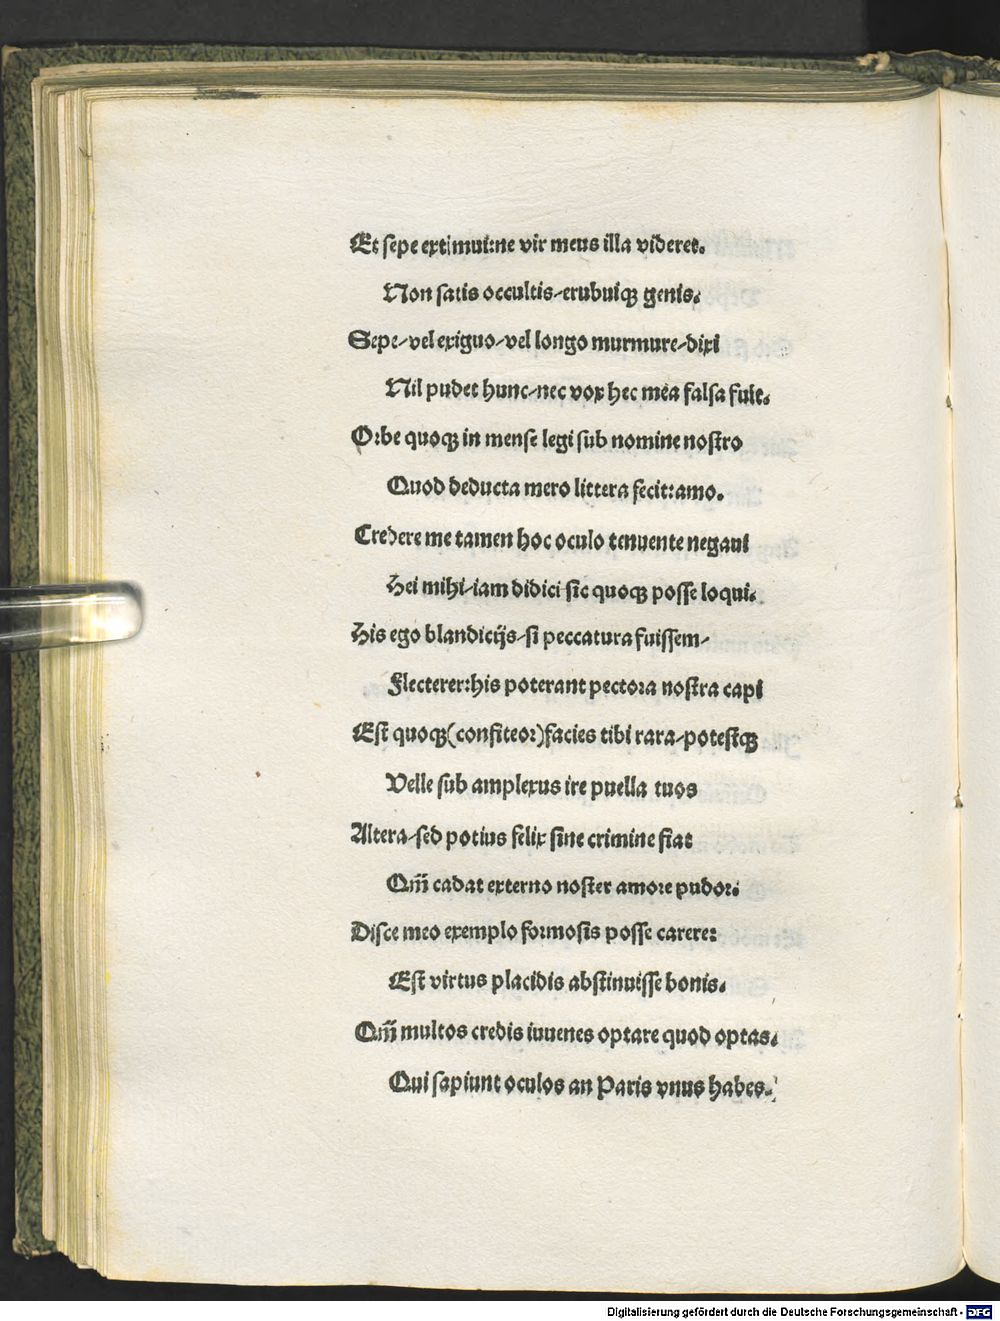 Et sepe extimui:ne vir meus illa videret.
Non satis occultis/erubuiqꝫ genis.
Sepe/vel exiguo/vel longo murmure/dixi
Nil pudet hunc/nec vox hec mea falsa fuit.
Orbe quoqꝫ in mense legi sub nomine nostro
Quod deducta mero littera fecit:amo.
Credere me tamen hoc oculo tenuente negaui
Hei mihi/iam didici sic quoqꝫ posse loqui.
His ego blandicijs/si peccatura fuissem/
Flecterer:his poterant pectora nostra capi
Est quoqꝫ(confiteor)facies tibi rara/potestqꝫ
Velle sub amplexus ire puella tuos
Altera/sed potius felix sine crimine fiat
Qm̄ cadat externo noster amore pudor.
Disce meo exemplo formosis posse carere:
Est virtus placidis abstinuisse bonis.
Qm̄ multos credis iuuenes optare quod optas.
Qui sapiunt oculos an Paris vnus habes.
Digitalisierung gefördert durch die Deutsche Forschungsgemeinschaft - DFG